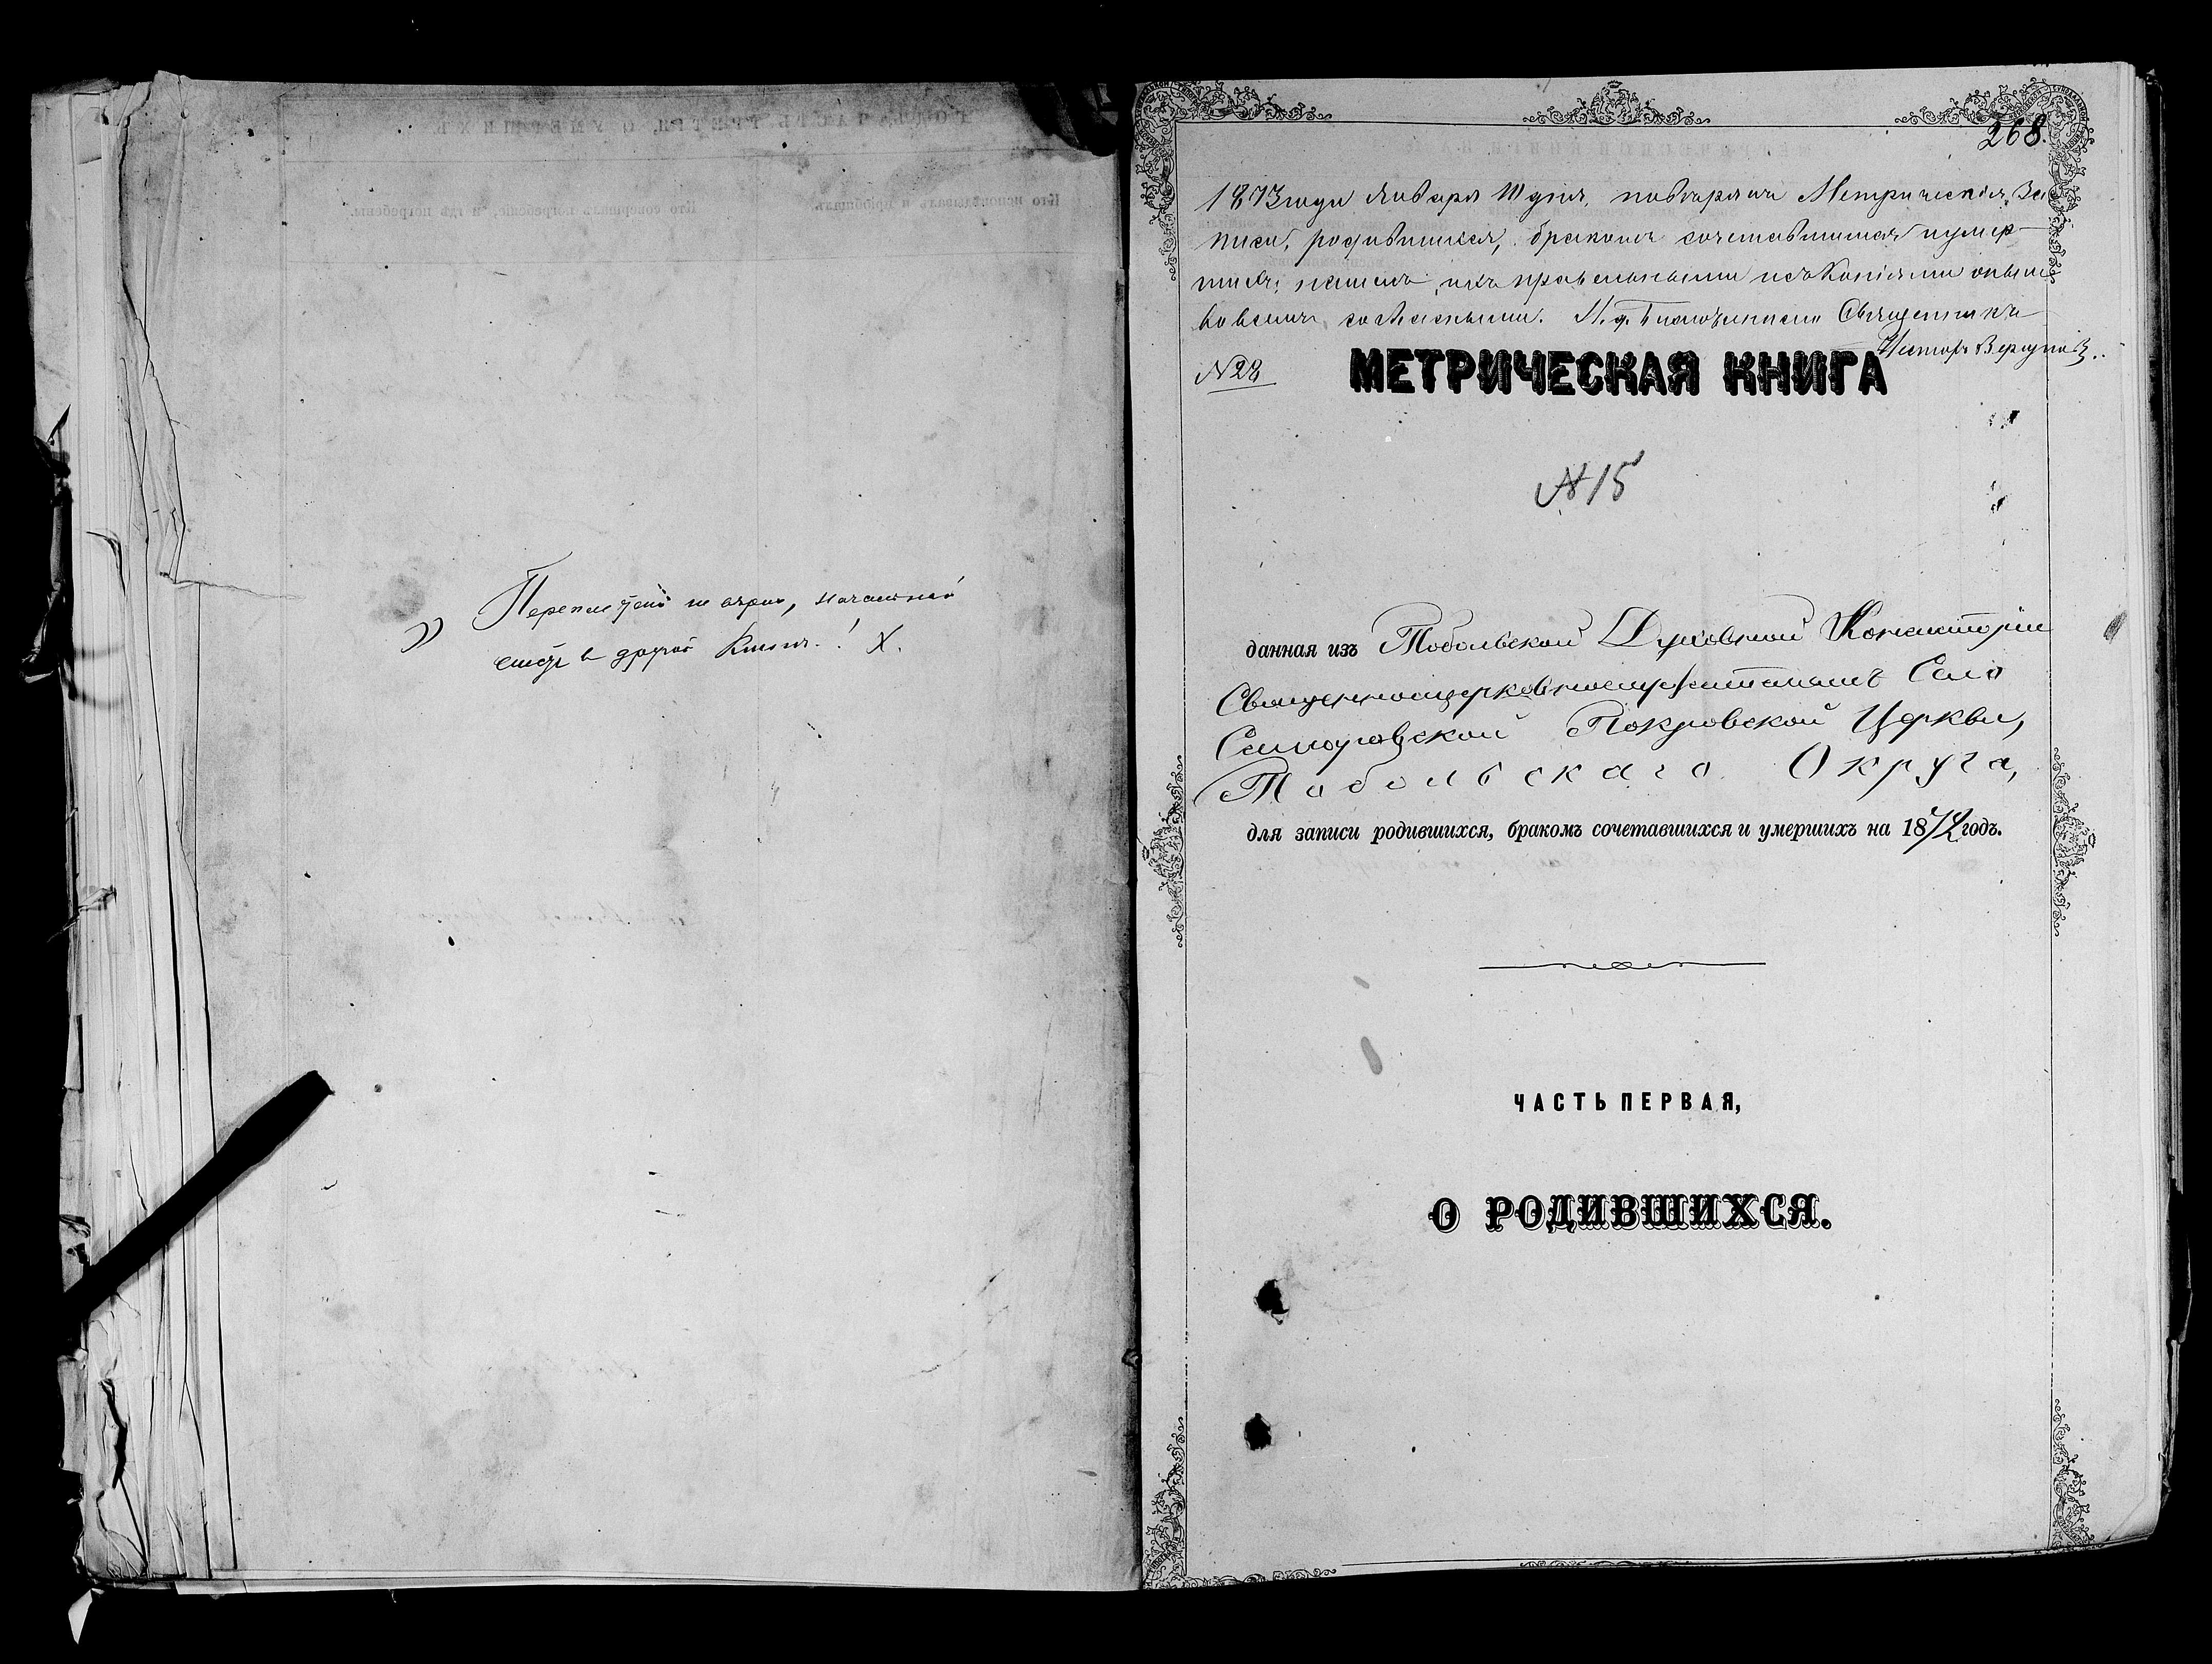 Переплетено не верно, начальной
въ другой Книгѣ.! X.
268.
1873 года Января 10 дня, повѣрялъ Метрическія За
писи, родившихся, бракомъ сочетавшихся и умер-
шихъ, нашелъ ихъ правильными и съ Копіями
во всемъ согласными. И. д. Благочиннаго Священникъ
№28
МЕТРИЧЕСКАЯ КНИГА
№15
данная изъ Тобольской Духовной Консисторіи
Священноцерковнослужителямъ Села
Самаровской Покровской Церкви,
Тобольскаго Округа,
для записи родившихся, бракомъ сочетавшихся и умершихъ на 1872 годъ.
ЧАСТЬ ПЕРВАЯ,
О РОДИВШИХСЯ.